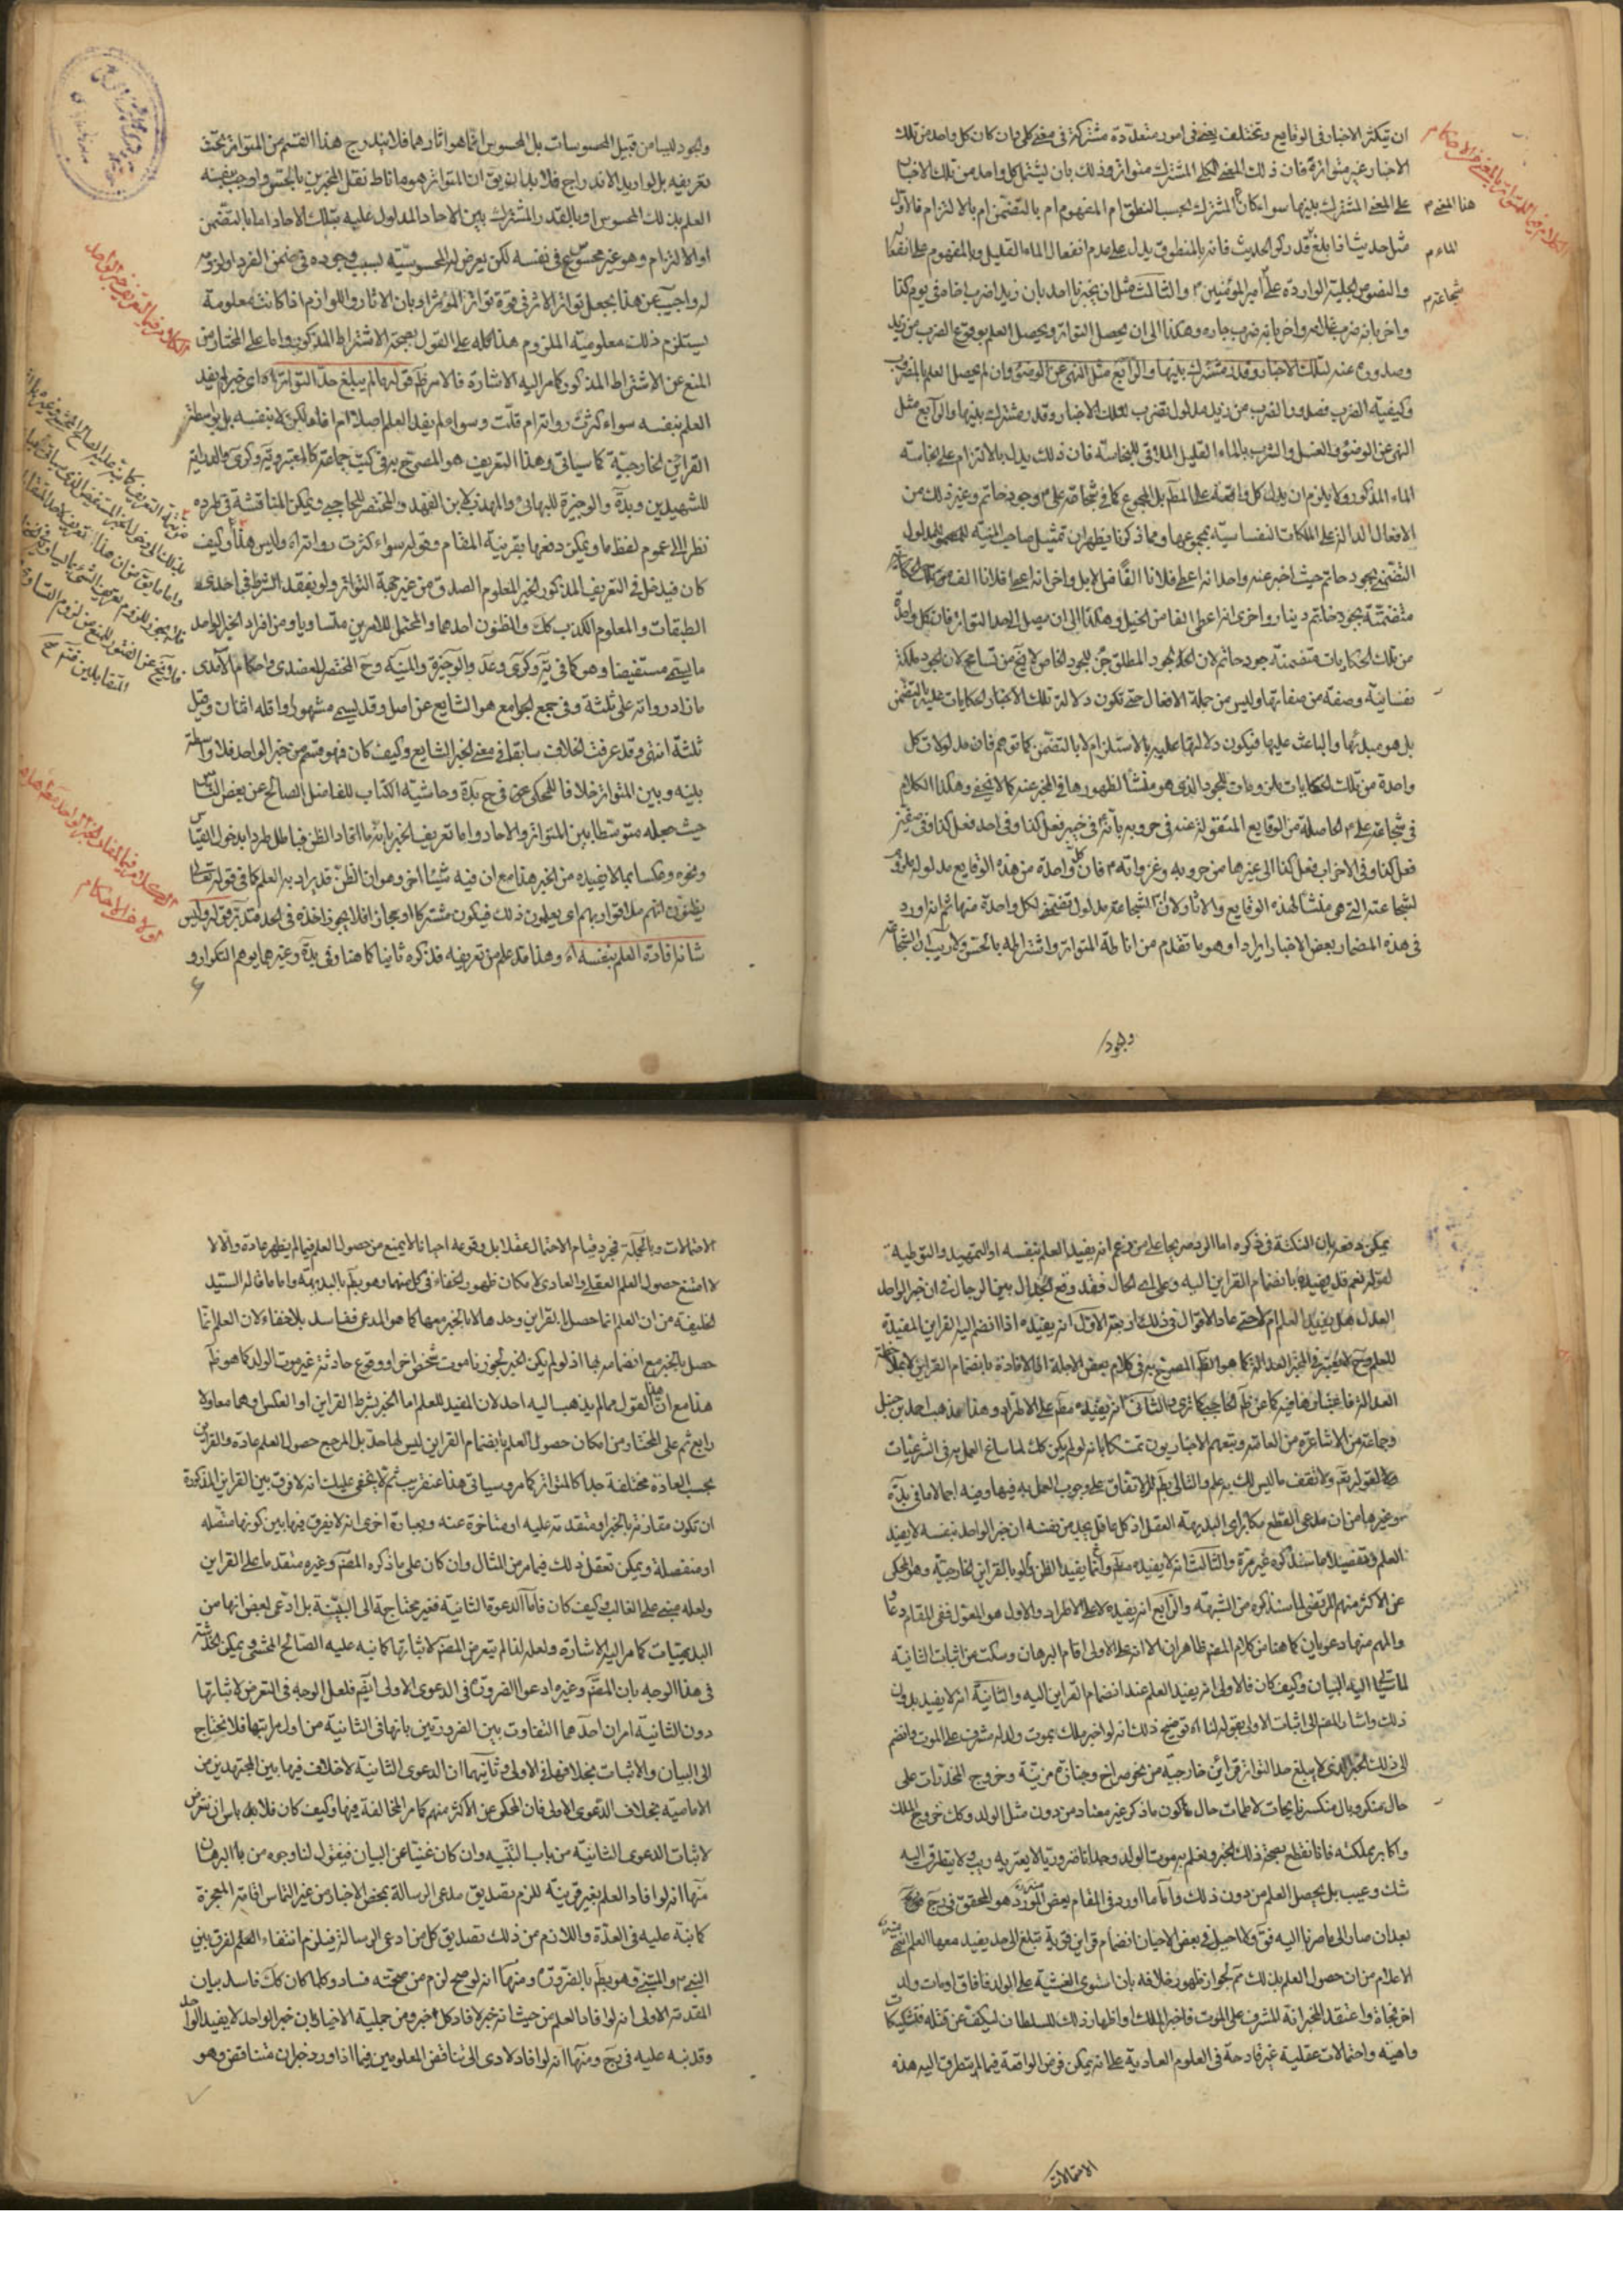 ان يتكثر الاخبار فى الوقايع وتختلف يعنى فى امور متعدّدة مشتركة فى معنى كلى وان كان كل واحد من تلك
الاخبار غير متواترة فان ذلك المعنى الكلى المشترك متواتر وذلك بان يشتمل كل واحد من تلك الاخبار
على المعنى المشترك بينها سواء كان المشترك بحسب النطق ام المفهوم ام بالتضمن ام بالالتزام فالاول
مثل حديث اذا بلغ قدر كر الحديث فانه بالمنطوق يدل على عدم انفعال الماء القليل وبالمفهوم على انفعال
والنصوص الجلية الواردة على امير المؤمنين والثالث مثل ان يخبرنا احد بان زيدا ضرب قاضى يوم كذا
واخر بانه ضرب غلامه واخر بانه ضرب جاره وهكذا الى ان يحصل التواتر ويحصل العلم بوقوع الضرب من زيد
وصدوره عنه لتلك الاخبار وقدر مشترك بينها والرابع مثل النهى عن الوضوء وان لم يحصل العلم بالمضروب
وكيفية الضرب فصدور الضرب من زيد مدلول تضمنى لتلك الاخبار وقدر مشترك بينها والرابع مثل
النهى عن الوضوء والغسل والشرب بالماء القليل الملاقى للنجاسة فان ذلك يدل بالالتزام على نجاسة
الماء المذكور ولا يلزم ان يدل كل واقعة على المط بل المجموع كما فى شجاعة على وجود حاتم وغير ذلك من
الافعال الدالة على الملكات النفسانية بمجموعها ومما ذكرنا يظهر ان تمثيل صاحب المنية للمدلول
التضمنى بجود حاتم حيث اخبر عنه واحد انه اعطى فلانا الفا من الابل واخر انه اعطى فلانا الف
متضمنة بجود حاتم دينار واخرى انه اعطى الفا من الخيل وهكذا الى ان يصل الى حد التواتر فان كل واحدة
من تلك الحكايات متضمنة جود حاتم لان الجود المطلق جزء للجود الخاص لا يخ من تسامح لان الجود ملكة
نفسانية وصفة من صفاتها وليس من جملة الافعال حتى تكون دلالة تلك الاخبار والحكايات عليه بالتضمن
بل هو مبدئها والباعث عليها فيكون دلالتها عليه بالاستلزام لا بالتضمن كما توهم فان مدلولات كل
واحدة من تلك الحكايات ملزومات للجود الذى هو منشأ لظهورها فى المخبر عنه كما لا يخفى وهكذا الكلام
فى شجاعة على الحاصلة من الوقايع المنقولة عنه فى حروبه بانه فى خيبر فعل كذا وفى احد فعل كذا وفى
فعل كذا وفى الاحزاب فعل كذا الى غيرها من حروبه وغزواته فان كل واحدة من هذه الوقايع مدلوله ملزوم
لشجاعته التى هى منشأ لهذه الوقايع والاثار ولان الشجاعة مدلول تضمنى لكل واحدة منها ثم انه اورد
فى هذه المضمار بعض الاخيار ايرادا وهو ما تقدم من اناطة المتواتر واشتراطه بالحس ولا ريب ان الشجاعة
هذا المعنى م
الماء م
شجاعته م
وجود
والجود ليسا من قبيل المحسوسات بل المحسوس انما هو اثارهما فلا يندرج هذا القسم من المتواتر تحت
تعريفه بل واريد الاندراج فلا بد ان يق ان المتواتر هو ما ناط نقل المخبرين بالحس واوجب بنفسه
العلم بذلك المحسوس او بالقدر المشترك بين الاحاد المدلول عليه بتلك الاحاد اما بالتضمن
او الالتزام وهو غير محسوس فى نفسه لكن يعرض له المحسوسية بسبب وجوده فى ضمن الفرد او لزومه
له واجيب عن هذا بجعل تواتر الاثر فى قوة تواتر المؤثر او بان الاثار واللوازم اذا كانت معلومة
يستلزم ذلك معلومية الملزوم هذا كله على القول بصحة الاشتراط المذكور واما على المختار من
المنع عن الاشتراط المذكور كما مر اليه الاشارة فالامر ظ قوله ما لم يبلغ حد التواتر اه اى خبر لم يفد
العلم بنفسه سواء كثرت رواته ام قلت وسواء لم يفد العلم اصلا ام افاده لكن لا بنفسه بل بواسطة
القرائن الخارجية كما سياتى وهذا التعريف هو المصرح به فى كتب جماعة كالمعتبر وية وكرى والبداية
للشهيدين وبدة والوجيزة للبهائى والمهذب لابن الفهد والمختصر للحاجبى ويمكن المناقشة فى طرده
نظرا الى عموم لفظ ما ويمكن دفعها بقرينة المقام وقوله سواء كثرت رواته اه وليس هذا وكيف
كان فيدخل فى التعريف المذكور الخبر المعلوم الصدق من غير جهة التواتر ولو بفقد الشرط فى احدى
الطبقات والمعلوم الكذب كك والمظنون احدهما والمحتمل للامرين متساويا ومن افراد الخبر الواحد
ما يسمى مستفيضا وهو كما فى ية وكرى وعد والوجيزة والمنية وح المختصر للعضدى واحكام الآمدى
ما زاد رواته على ثلثة وفى جمع الجوامع هو الشايع عن اصل وقد يسمى مشهورا واقله اثنان وقيل
ثلثة انتهى وقد عرفت الخلاف سابقا فى معنى الخبر الشايع وكيف كان فهو قسم من خبر الواحد فلا واسطة
بينه وبين المتواتر خلافا للمحكى عنه فى ح بدة وحاشية الكتاب للفاضل الصالح عن بعض الناس
حيث جعله متوسطا بين المتواتر والاحاد واما تعريف الخبر بانه ما افاد الظن فباطل طردا بدخول القياس
ونحوه وعكسا بما لا يفيده من الخبر هذا مع ان فيه شيئا اخر وهو ان الظن قد يراد به العلم كما فى قوله تعالى
يظنون انهم ملاقوا ربهم اى يعلمون ذلك فيكون مشتركا او مجازا فلا يجوز اخذه فى الحد فتدبر قوله وليس
شانه افادة العلم بنفسه اه وهذا قد علم من تعريفه فذكره ثانيا كما هنا وفى بدة وغيرهما يوهم التكرار و
يمكن دفعه بان النكتة فى ذكره اما الرد صريحا على من زعم انه يفيد العلم بنفسه او التمهيد والتوطية
لقوله نعم قد يفيده بانضمام القراين اليه وعلى اى حال فقد وقع الجدال بين الرجال فى ان خبر الواحد
العدل هل يفيد العلم ام لا حتى عاد الاقوال فى ذلك اربعة الاول انه يفيده اذا انضم اليه القراين المفيدة
للعلم وح لا يعتبر فى المخبر العدالة كما هو الظ المصرح به فى كلام بعض الاجلة اذ الافادة بانضمام القراين لا بملاحظة
العدالة فاعتبارها فيه كما عن ظ الحاجبى كما ترى والثانى انه يفيده مط على الاطراد وهذا مذهب احمد بن حنبل
وجماعة من الاشاعرة من العامة وتبعهم الاخباريون تمسكا بانه لو لم يكن كك لما ساغ العمل به فى الشرعيات
لقوله تع ولا تقف ما ليس لك به علم والتالى بط للاتفاق على وجوب العمل به فيها وفيه اجمالا ما فى بدة
وغيرها من ان مدعى القطع مكابر اى البديهة العقل اذ كل عاقل يجد من نفسه ان خبر الواحد بنفسه لا يفيد
العلم وتفصيلا ما سنذكره غير مرة والثالث انه لا يفيده مط وانما يفيد الظن ولو بالقراين الخارجية وهو المحكى
عن الاكثر منهم المرتضى لما سنذكره من الشبهة والرابع انه يفيده لا على الاطراد والاول هو المعول ففى المقام دعا
والمهم منها دعويان كما هنا من كلام المصنف ظاهران الا انه على الاولى اقام البرهان وسكت عن اثبات الثانية
ذلك واشار المصنف الى اثبات الاولى بقوله لنا اه توضيح ذلك انه لو اخبر ملك بموت ولد له مشرف على الموت وانضم
الى ذلك الخبر الذى لم يبلغ حد التواتر قرائن خارجية من نحو صراخ وجنازة مزينة وخروج المخدرات على
حال منكر وبال منكسر نايحات لاطمات حال كون ما ذكر غير معتاد من دون مثل الولد وكك خروج الملك
واكابر مملكته فانا نقطع بصحة ذلك الخبر ونعلم به موت الولد وجدانا ضروريا لا يعتريه ريب ولا يتطرق اليه
شك وعيب بل يحصل العلم من دون ذلك واما ما اورد فى المقام بعض هو المحقق فى رج
بعد ان صار الى ما صرنا اليه فوق ولما حصل فى بعض الاحيان انضمام قراين قوية تبلغ الى حد يفيد معها العلم
الاعلام من ان حصول العلم بذلك ثم لجواز ظهور خلافه بان استوى الغشية على الولد فافاق او مات ولد
اخر فجأة واعتقد المخبر انه المشرف على الموت فاخبر الملك او اظهار ذلك للسلطان ليكف عن قتله فتشكيكات
واهية واحتمالات عقلية غير قادحة فى العلوم العادية على انه يمكن فرض الواقعة فيما لم يتطرق اليه هذه
الاحتمالات
الاحتمالات وبالجملة فمجرد قيام الاحتمال عقلا بل وقوعه احيانا لا يمنع من حصول العلم فيما لم يظهر عادة والا لا
لا امتنع حصول العلم العقلى والعادى لامكان ظهور الخفاء فى كل منهما وهو بط بالبديهة واما ما قاله السيد
الخليفة من ان العلم انما حصل بالقراين وحدها لا بالخبر معها كما هو المدعى ففاسد بلا خفاء لان العلم انما
حصل بالخبر مع انضمامه بها اذ لو لم يكن الخبر لجوزنا موت شخص اخر او وقوع حادثة غير موت الولد كما هو ظ
هذا مع ان هذا القول مما لم يذهب اليه احد لان المفيد للعلم اما الخبر بشرط القراين او العكس وهما معا ولا
رابع ثم على المختار من امكان حصول العلم بانضمام القراين ليس لها حد بل المرجع حصول العلم عادة والقراين
بحسب العادة مختلفة جدا كالمتواتر كما مر وسياتى هذا عنقريب ثم لا يخفى عليك انه لا فرق بين القراين المذكورة
ان تكون مقارنة بالخبر او متقدمة عليه او متاخرة عنه وبعبارة اخرى انه لا يفرق فيها بين كونها متصله
او منفصلة ويمكن تعقل ذلك فيما مر من المثال وان كان على ما ذكره المصنف وغيره متقدما على القراين
ولعله مبنى على الغالب وكيف كان فاما الدعوة الثانية فغير محتاجة الى البينة بل ادعى بعض انها من
البديهيات كما مر اليه الاشارة ولعله لذا لم يتعرض المصنف لاثباتها كما نبه عليه الصالح المحشى ويمكن الخدشة
فى هذا الوجه بان المصنف وغيره ادعوا الضرورة فى الدعوى الاولى ايضا فلعل الوجه فى التعرض لاثباتها
دون الثانية امران احدهما التفاوت بين الضرورتين بانها فى الثانية من اول مراتبها فلا تحتاج
الى البيان والاثبات بخلافها فى الاولى وثانيهما ان الدعوى الثانية لا خلاف فيها بين المجتهدين من
الامامية بخلاف الدعوى الاولى فان المحكى عن الاكثر منهم كما مر المخالفة فيها وكيف كان فلا باس ان نتعرض
لاثبات الدعوى الثانية من باب التنبيه وان كان غنيا عن البيان فنقول لنا وجوه من البرهان
منها انه لو افاد العلم بغير قرينة للزم تصديق مدعى الرسالة بمحض الاخبار من غير التماس اقامة المعجزة
كما نبه عليه فى العدة واللازم من ذلك تصديق كل من ادعى الرسالة فيلزم انتفاء العلم لفرق بين
النبى والمتنبى وهو بط بالضرورة ومنها انه لو صح لزم من صحته فساده وكلما كان كك فاسد بيان
المقدمة الاولى انه لو افاد العلم من حيث انه خبر لافاد كل خبر ومن جملة الاخبار ان خبر الواحد لا يفيد
وقد نبه عليه فى نهج ومنها انه لو افاد لادى الى تناقض المعلومين فيما اذا ورد خبران متناقضين وهو